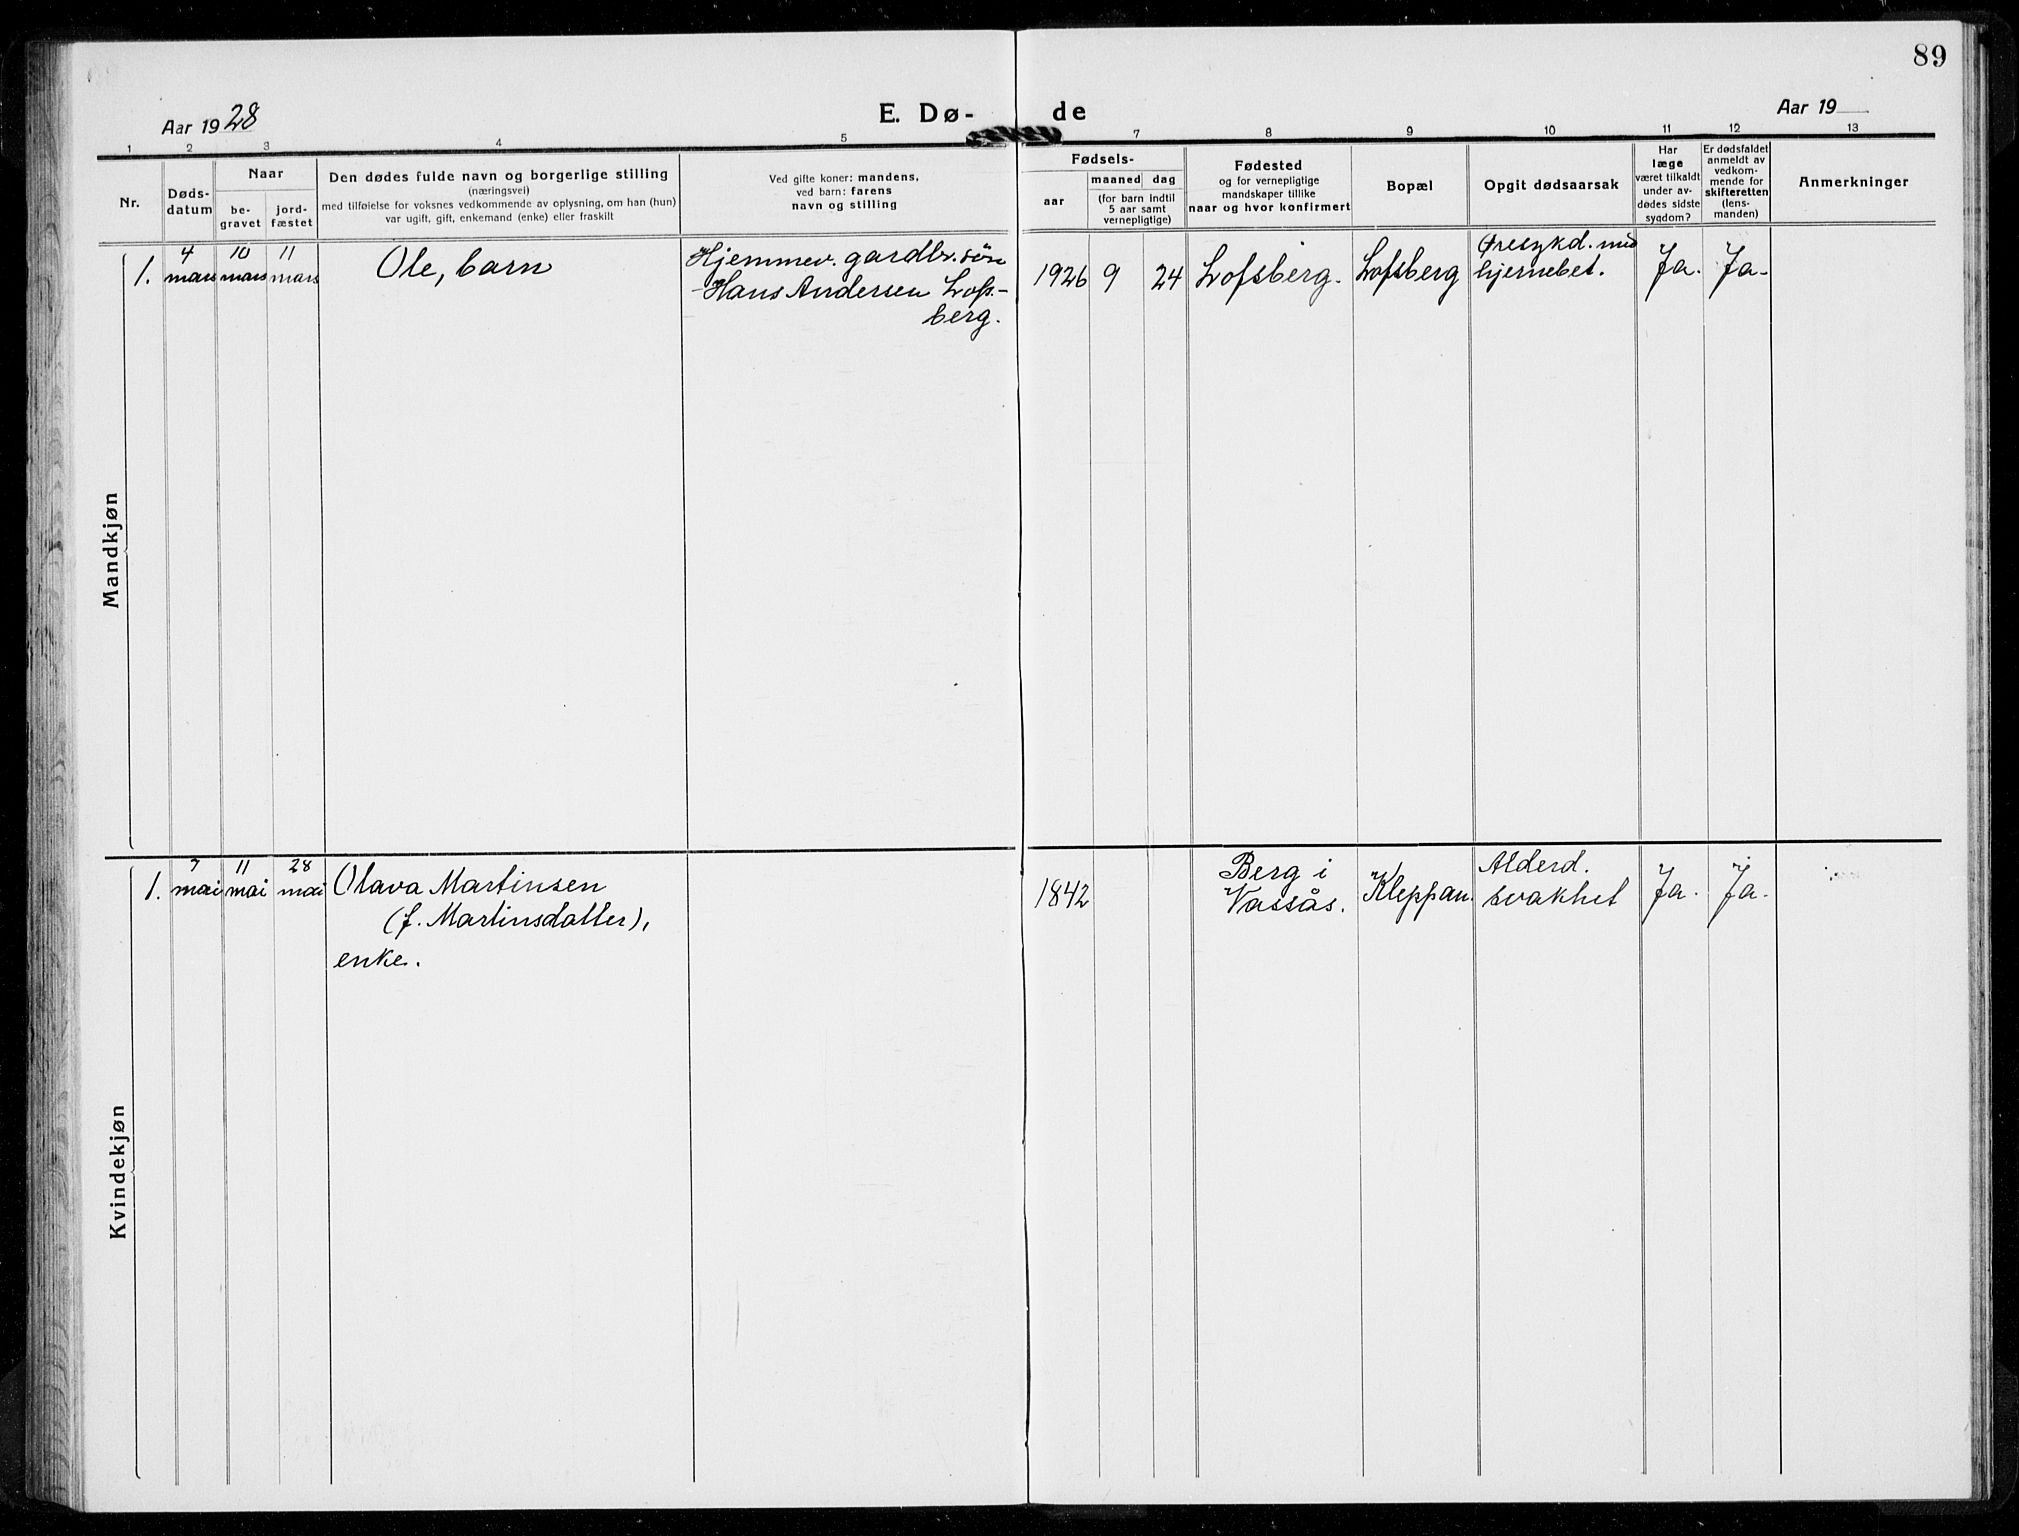 89
Aar 1928
E. Dø-
de
Aar 19
1 2 3 4 5 7 8 9 10 11 12 13
Nr.
Døds-
datum
Naar
be-
gravet
jord-
fæstet
Den dødes fulde navn og borgerlige stilling
(næringsvei)
med tilføielse for voksnes vedkommende av oplysning, om han (hun)
var ugift, gift, enkemand (enke) eller fraskilt
Ved gifte koner: mandens,
ved barn: farens
navn og stilling
Fødsels-
aar
maaned dag
(for barn indtil
5 aar samt
vernepligtige)
Fødested
og for vernepligtige
mandskaper tillike
naar og hvor konfirmert
Bopæl
Opgit dødsaarsak
Har
læge
været tilkaldt
under av-
dødes sidste
sygdom?
Er dødsfaldet
anmeldt av
vedkom-
mende for
skifteretten
(lens-
manden)
Anmerkninger
Mandkjøn
1.
4
mars
10
mars
11
mars
Ole, barn
Hjemmev. gardbr. søn
Hans Andersen Lofs-
berg.
1926 9 24
Lofsberg.
Lofsberg
Øresykd. med
hjernebet.
Ja.
Ja-
Kvindekjøn
1.
7
mai
11
mai
28
mai
Olava Martinsen
(f. Martinsdatter),
enke.
1842
Berg i
Vassås.
Kleppan.
Alderd.
svakhet
Ja.
Ja.